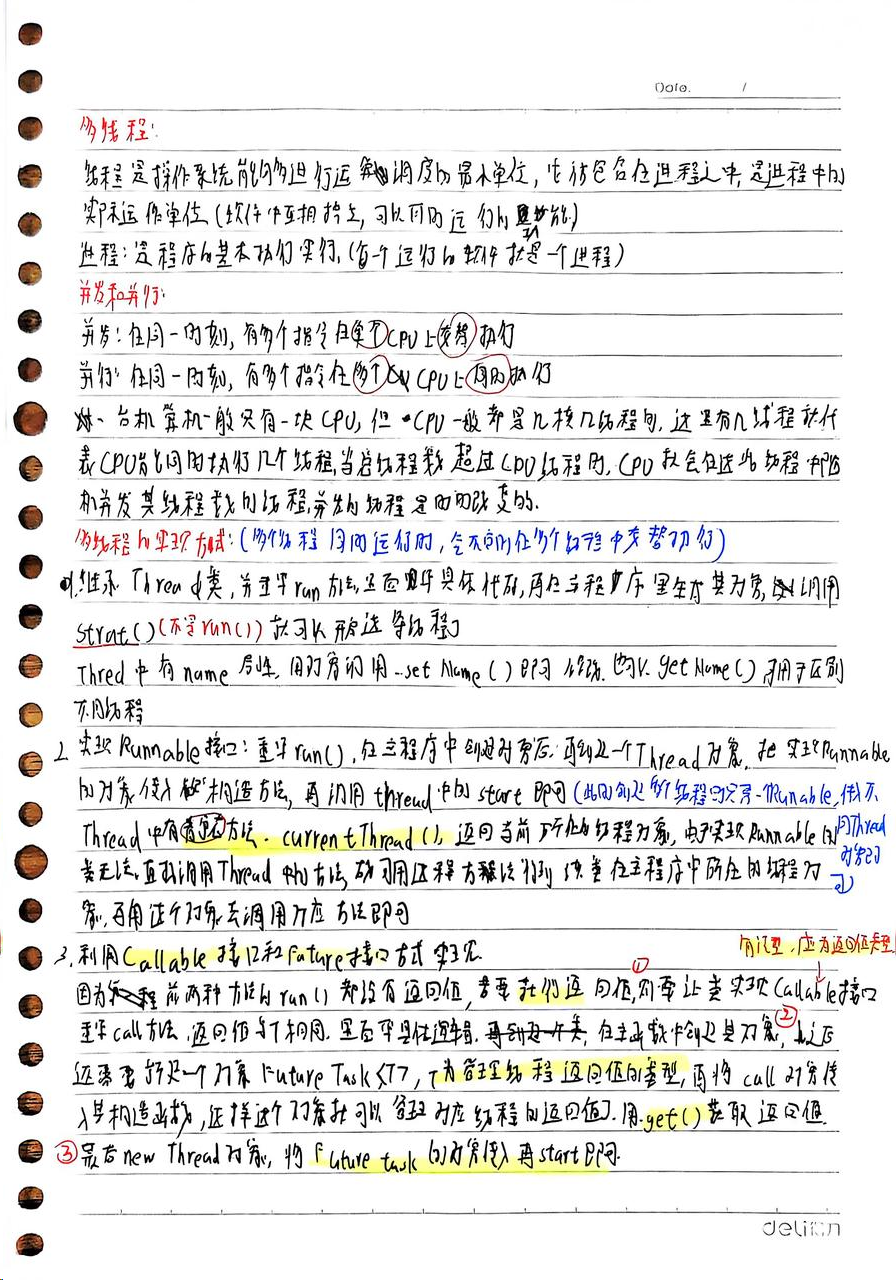 Date. /
多线程:
线程是操作系统能够进行运算调度的最小单位,它被包含在进程之中,是进程中的
实际运作单位(软件中互相独立,可以同时运行的功能)
进程:是程序的基本执行实体,(每一个运行的软件就是一个进程)
并发和并行:
并发:在同一时刻,有多个指令在单个CPU上交替执行
并行:在同一时刻,有多个指令在多个CPU上同时执行
一台计算机一般只有一块CPU,但CPU一般都是几核几线程的,这里有几线程就代
表CPU能同时执行几个线程,当总线程数超过CPU线程时,CPU就会在这些线程中随
机并发其线程数的线程,并发的线程是时时改变的.
多线程的实现方式:(多个线程同时运行时,会不同的在多个线程中交替执行)
1.继承Thread类,并重写run方法,里面写具体代码,再在主程序里生成其对象,调用
strat()(不是run())就可以开启这条线程了
Thred中有name属性,用对象调用..setName()即可修改.也可以getName()可用于区别
不同线程
2.实现Runnable接口:重写run(),在主程序中创建对象后,再创建一个Thread对象,把实现Runnable
的对象传入构造方法,再调用thread中的start即可(此时创建多个线程时只写一个Runable,传入不
同Thread
对象即
可)
Thread中有静态方法.currentThread(),返回当前所处的线程对象,由于实现Runnable的
类无法直接调用Thread中的方法,故可用这种方法得到该类在主程序中所在的线程对
象,再用这个对象去调用对应方法即可
3.利用Callable接口和Future接口方式实现.
有泛型,应为返回值类型
因为前两种方法的run()都没有返回值,若要我们返回值,①则要让类实现Callable接口
重写call方法.返回值与T相同.里面写具体逻辑.在主函数中创建其对象,②之后
还需要创建一个对象FutureTask<T>,T为管理线程返回值的类型,再将call对象传
入其构造函数,这样这个对象就可以管理对应线程的返回值了.用.get()获取返回值.
③最后new Thread对象,将Future task的对象传入再start即可.
deli